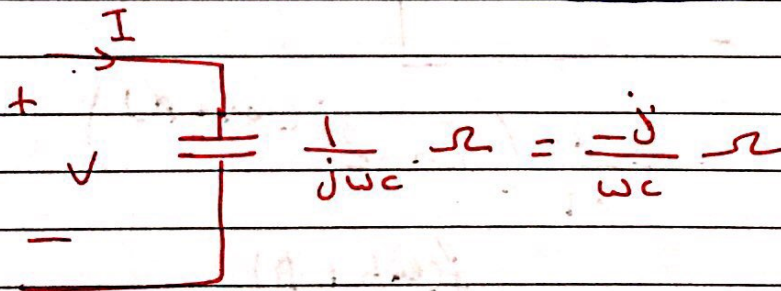 I
+
V
1/jωc Ω = -j/ωc Ω
−